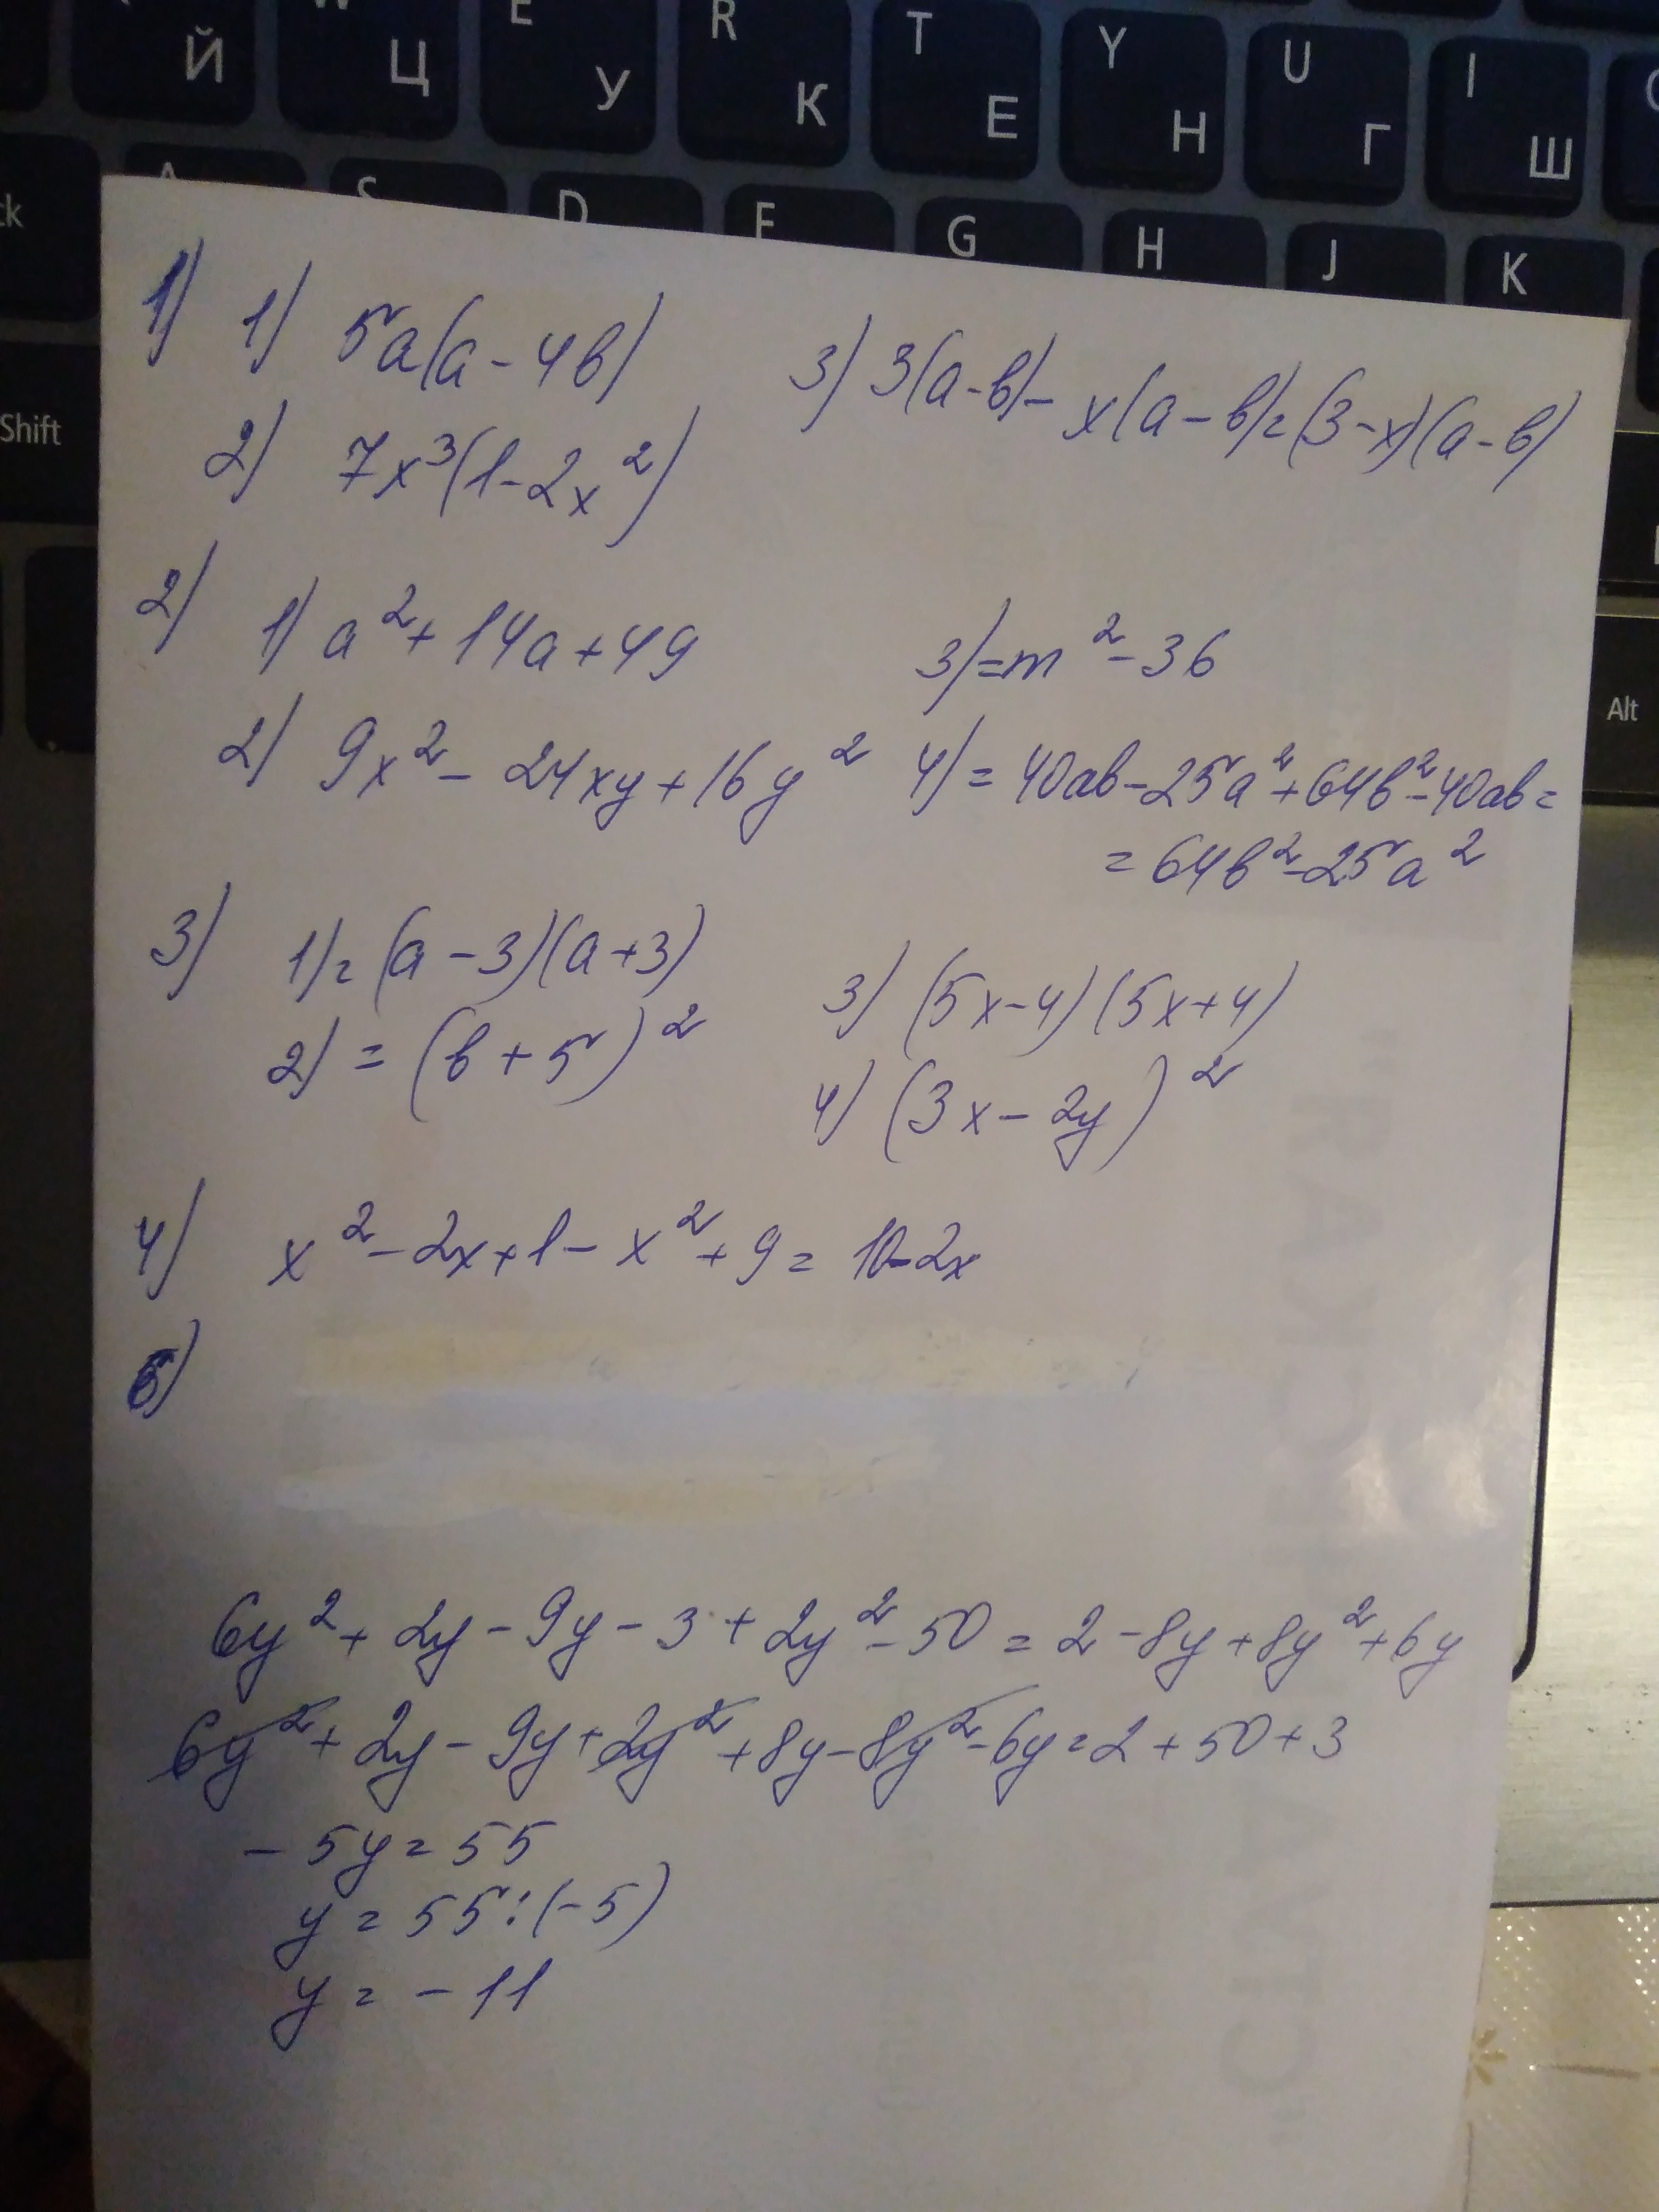 W E R T Y U I
Й Ц У К Е Н Г Ш
A S D F G H J K
ck
Shift
Alt
1) 1) 5a(a-4b) 3) 3(a-b)-x(a-b)=(3-x)(a-b)
2) 7x³(1-2x²)
2) 1) a²+14a+49 3)=m²-36
2) 9x²-24xy+16y² 4)=40ab-25a²+64b²-40ab=
=64b²-25a²
3) 1)=(a-3)(a+3) 3) (5x-4)(5x+4)
2)=(b+5)² 4) (3x-2y)²
4) x²-2x+1-x²+9=10-2x
5)
6y²+2y-9y-3+2y²-50=2-8y+8y²+6y
6y²+2y-9y+2y²+8y-8y²-6y=2+50+3
-5y=55
y=55:(-5)
y=-11